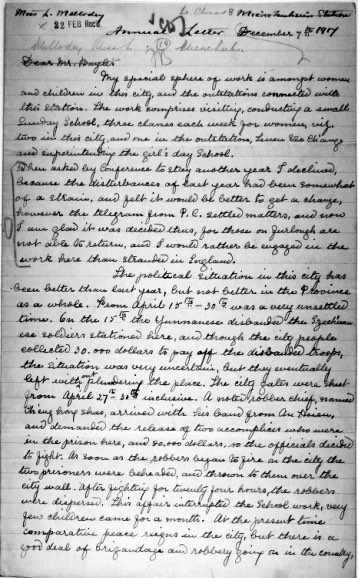 Miss L. Mellodey
22 FEB Rec'd
W. China
Mienchuhsien Station
Annual Letter December 7th 1917
Mellodey, Miss L. Mienchuh
Dear Mr. Bayliss
My special sphere of work is amongst women
and children in this city, and the outstations connected with
this station. The work comprises visiting, conducting a small
Sunday School, three classes each week for women, viz.
two in this city, and one in the outstation,
and superintending the girl's day School.
When asked by Conference to stay another year I declined,
because the disturbances of last year had been somewhat
of a strain, and felt it would be better to get a change,
however the telegram from P.C. settled matters, and now
I am glad it was decided thus, for those on furlough are
not able to return, and I would rather be engaged in the
work here than stranded in England.
The political situation in this city has
been better than last year, but not better in the Province
as a whole. From April 15th - 30th was a very unsettled
time. On the 15th the Yunnanese disbanded the Szechwan-
ese soldiers stationed here, and though the city people
collected 30,000 dollars to pay off the disbanded troops,
the situation was very uncertain, but they eventually
left without plundering the place. The city gates were shut
from April 27th - 30th inclusive. A noted robber chief, named
arrived with his band from An Hsien,
and demanded the release of two accomplices who were
in the prison here, and 50,000 dollars, so the officials decided
to fight. As soon as the robbers began to fire on the city the
two prisoners were beheaded, and thrown to them over the
city wall. After fighting for twenty four hours, the robbers
were dispersed. This affair interrupted the School work, very
few children came for a month. At the present time
comparative peace reigns in the city, but there is a
good deal of brigandage and robbery going on in the country,